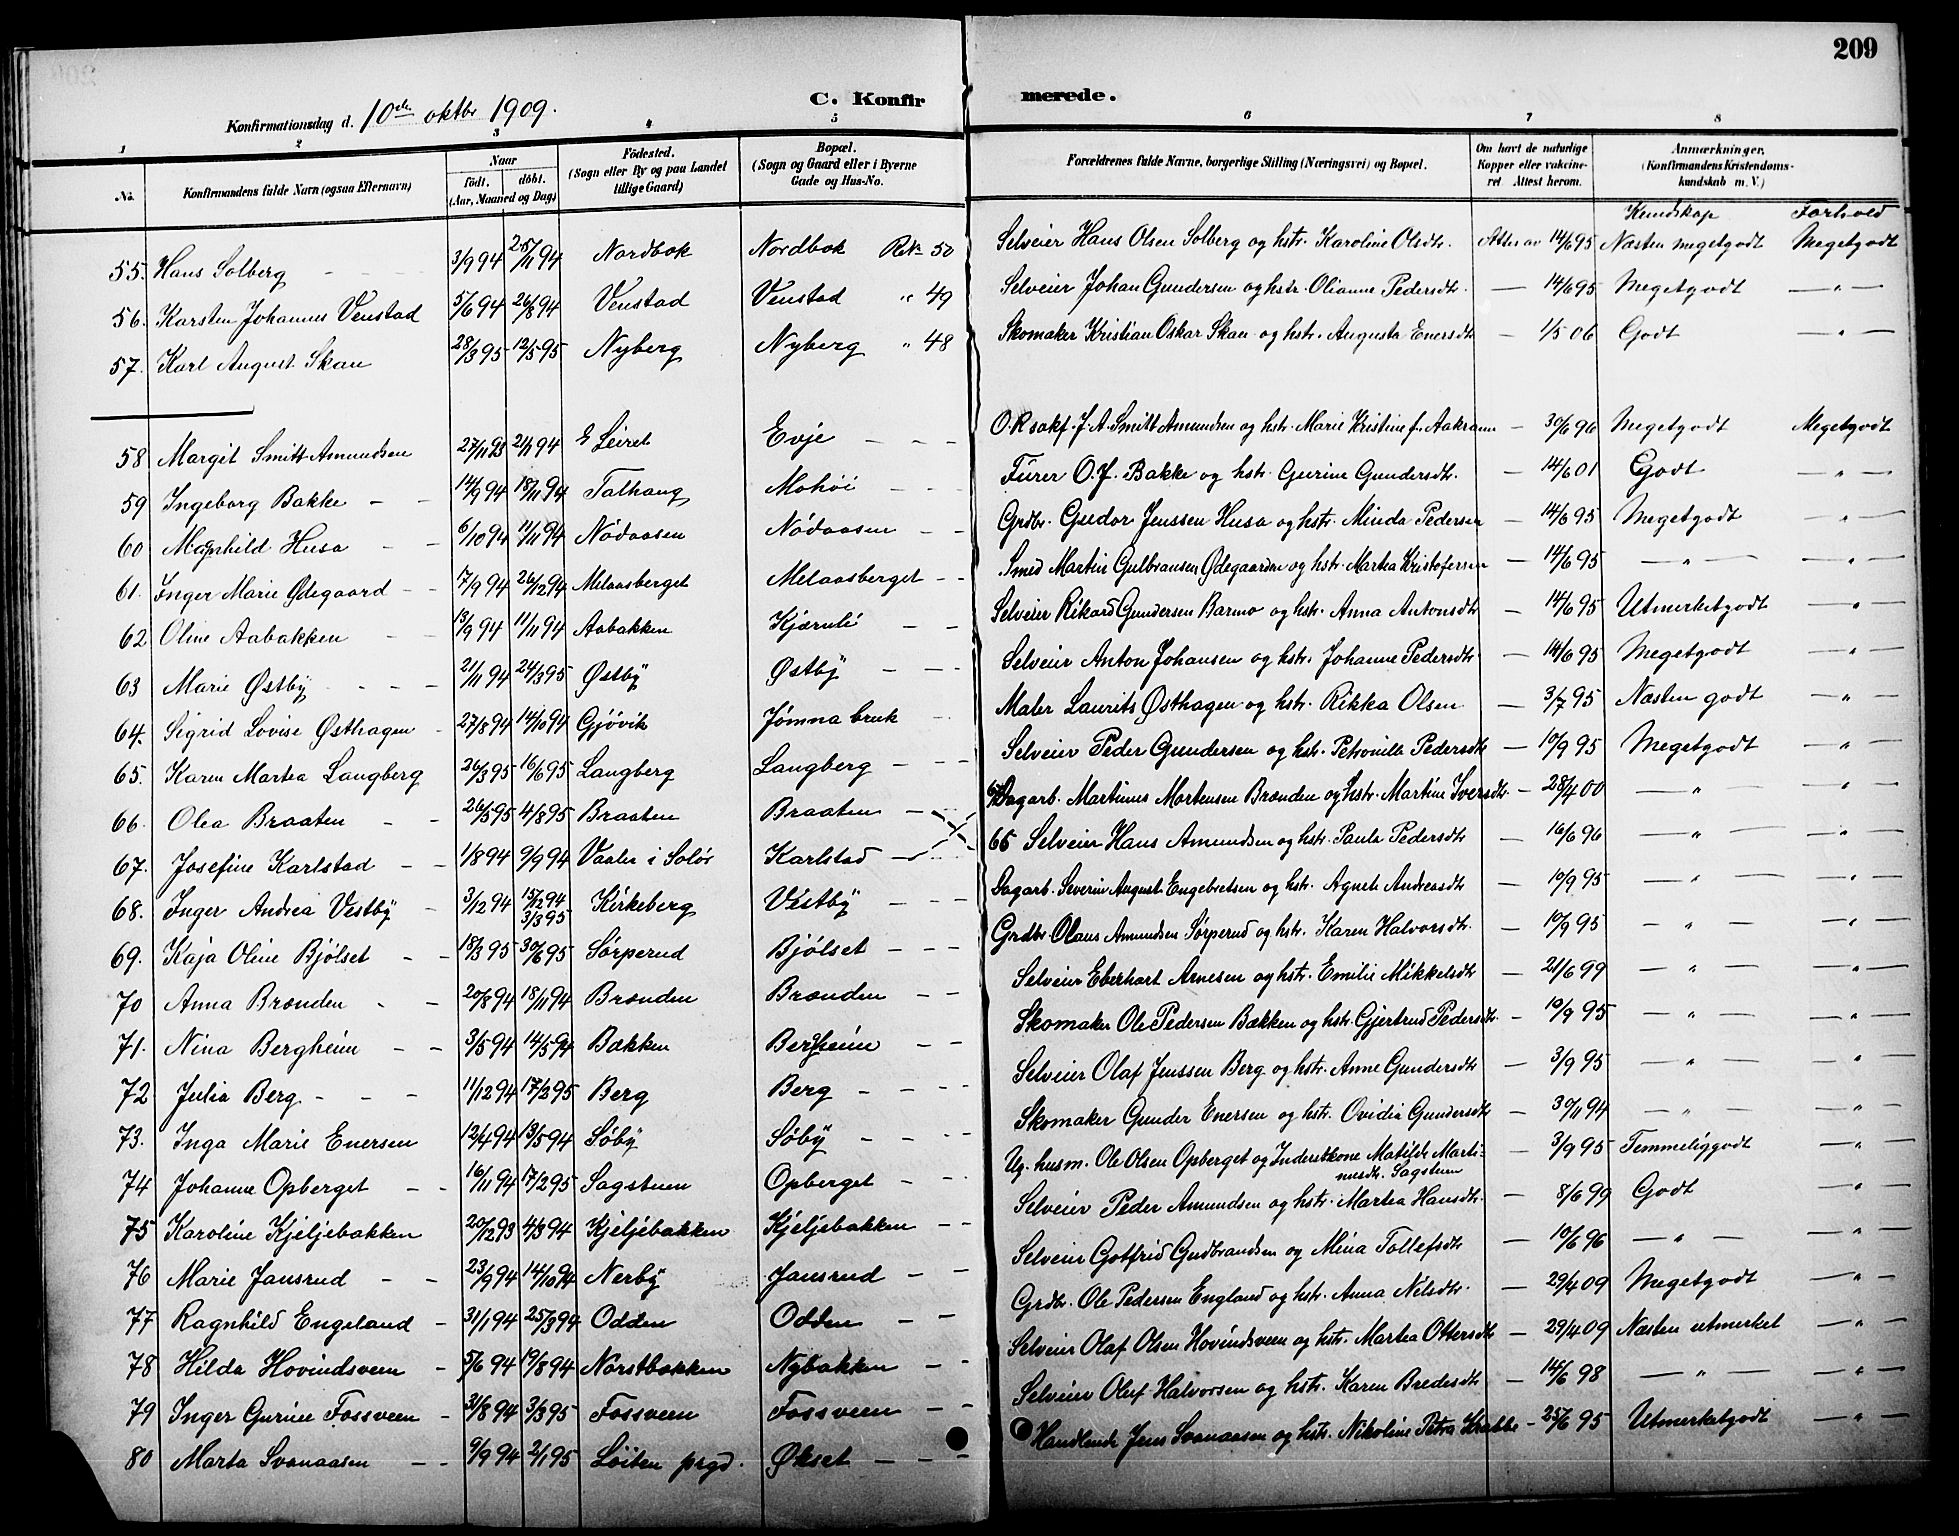 209
C. Konfirmerede.
Konfirmationsdag d. 10de oktbr 1909.
1 2 3 4 5 6 7 8
No. Konfirmandens fulde Navn (ogsaa Efternavn) Naar födt, döbt. (Aar, Maaned og Dag) Födested. (Sogn eller By og paa Landet tillige Gaard) Bopæl. (Sogn og Gaard eller i Byerne Gade og Hus-No. Forældrenes fulde Navne, borgerlige Stilling (Næringsvei) og Bopæl. Om havt de naturlige Kopper eller vakcineret Attest herom. Anmærkninger, (Konfirmandens Kristendomskundskab m. V.)
Kundskap Forhold
55. Hans Solberg 3/9 94 25/11 94 Nordbok Nordbok Rk 50 Selveier Hans Olsen Solberg og hstr. Karoline Olsdtr. Attest av 14/6 95 Næsten megetgodt Megetgodt
56. Karsten Johannes Venstad 5/6 94 26/8 94 Venstad Venstad " 49 Selveier Johan Gundersen og hstr. Olianne Pedersdtr. — 14/6 95 Megetgodt — " —
57. Karl August Skau 28/3 95 12/5 95 Nyberg Nyberg " 48 Skomaker Kristian Oskar Skau og hstr. Augusta Enersdtr — 1/5 06 Godt — " —
58 Margit Smitt Amundsen 27/11 93 2/1 94 Leiret Evje O.R.sakf. J. A. Smitt Amundsen og hstr. Marie Kristine f. Aakrann — 30/6 96 Megetgodt Megetgodt
59 Ingeborg Bakke 14/9 94 18/11 94 Talhaug Mohöi Fürer O. J. Bakke og hstr. Gurine Gundersdtr. — 14/6 01 Godt — " —
60 Magnhild Husa 6/10 94 11/11 94 Nödaasen Nödaasen Grdbr. Gudor Jenssen Husa og hstr. Minda Pedersen — 14/6 95 Megetgodt — " —
61. Inger Marie Ødegaard 7/9 94 26/12 94 Melaasberget Melaasberget Smed Martin Gulbransen Ødegaarden og hstr. Martea Kristofersen — 14/6 95 — " — — " —
62 Oline Aabakken 13/9 94 11/11 94 Aabakken Kjærnli Selveier Rikard Gundersen Barmo og hstr. Anna Antonsdtr — 14/6 95 Utmerketgodt — " —
63 Marie Østby 2/11 94 24/3 95 Østby Østby Selveier Anton Johansen og hstr. Johanne Pedersdtr. — 14/6 95 Megetgodt — " —
64. Sigrid Lovise Østhagen 27/8 94 14/10 94 Gjøvik Jömna bruk Maler Laurits Østhagen og hstr. Rikka Olsen — 3/7 95 Næsten godt — " —
65. Karen Martea Langberg 26/3 95 16/6 95 Langberg Langberg Selveier Peder Gundersen og hstr. Petronille Pedersdtr — 10/9 95 Megetgodt — " —
66. Olea Braaten 26/5 95 4/8 95 Braaten Braaten Dagarb. Martinus Mortensen Brænden og hstr. Martine Iversdtr. — 28/4 00 — " — — " —
67. Josefine Karlstad 1/8 94 9/9 94 Vaaler i Solör Karlstad 66 Selveier Hans Amundsen og hstr. Paula Pedersdtr — 16/6 96 — " — — " —
68. Inger Andrea Vestby 3/12 94 15/12 94 3/3 95 Kirkeberg Vestby Dagarb. Severin August Engebretsen og hstr. Agnete Andreasdtr — 10/9 95 — " — — " —
69. Kaja Oline Bjölset 18/3 95 30/6 95 Sörperud Bjölset Grdbr. Olaus Amundsen Sørperud og hstr. Karen Halvorsdtr. — 10/9 95 — " — — " —
70 Anna Brænden 20/8 94 18/11 94 Brænden Brænden Selveier Eberhart Arnesen og hstr. Emilie Mikkelsdtr — 21/6 99 — " — — " —
71. Nina Bergheim 3/5 94 14/5 94 Bækken Bergheim Skomaker Ole Pedersen Bækken og hstr. Gjertrud Pedersdtr. — 10/9 95 — " — — " —
72 Julia Berg 11/12 94 17/2 95 Berg Berg Selveier Olaf Jenssen Berg og hstr. Anne Gundersdtr — 3/9 95 — " — — " —
73. Inga Marie Enersen 12/4 94 13/5 94 Söby Söby Skomaker Gunder Enersen og hstr. Ovidia Gundersdtr — 30/11 94 — " — — " —
74 Johanne Opberget 16/11 94 17/2 95 Sagstuen Opberget Ug. husm. Ole Olsen Opberget og Inderstkone Matilde Martinusdtr. Sagstuen — 3/9 95 Temmeliggodt — " —
75 Karoline Kjeljebakken 20/12 93 4/3 94 Kjeljebakken Kjeljebakken Selveier Peder Amundsen og hstr. Martea Hansdtr. — 8/6 99 Godt — " —
76 Marie Jansrud 23/9 94 14/10 94 Nerby Jansrud Selveier Gotfrid Gudbrandsen og Mina Tollefsdtr — 10/6 96 — " — — " —
77 Ragnhild Engeland 31/1 94 25/3 94 Odden Odden Grdbr. Ole Pedersen England og hstr. Anna Nilsdtr. — 29/4 09 Megetgodt — " —
78 Hilda Hovindsveen 5/6 94 19/8 94 Norstbakken Nybakken Selveier Olaf Olsen Hovindsveen og hstr. Martea Ottersdtr — 29/4 09 Næsten utmerket — " —
79 Inger Gurine Fossveen 31/8 94 3/3 95 Fossveen Fossveen Selveier Oluf Halvorsen og hstr. Karen Bredesdtr — 14/6 98 — " — — " —
80 Marta Svanaasen 9/9 94 2/1 95 Löiten prgd. Økset Handlende Jens Svanaasen og hstr. Nikoline Petra Krabbe — 25/6 95 Utmerketgodt — " —